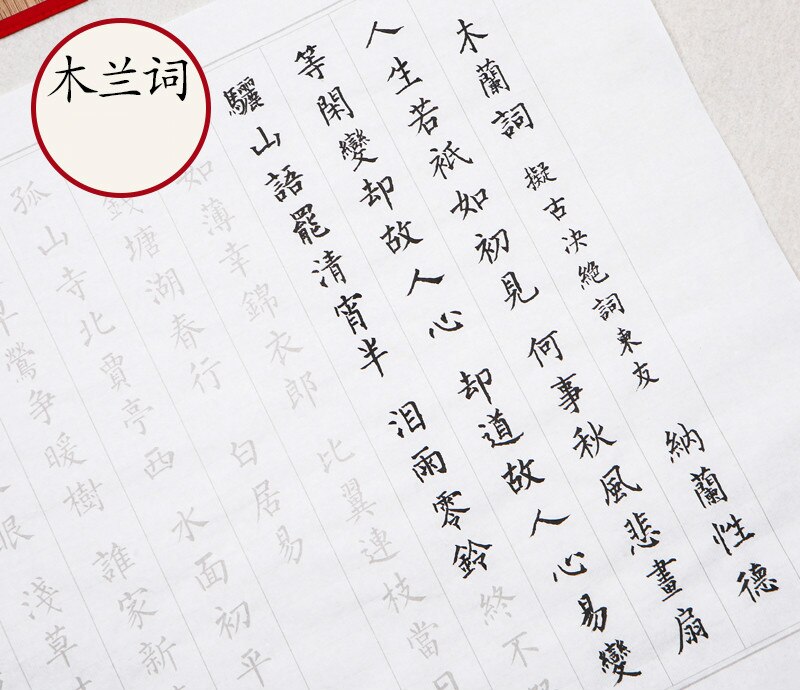 木兰词
木蘭詞 擬古决絶詞柬友 納蘭性德
人生若衹如初見 何事秋風悲畫扇
等閑變却故人心 却道故人心易變
驪山語罷清宵半 泪雨零鈴 終不
如薄幸錦衣郎 比翼連枝當日
錢塘湖春行 白居易
孤山寺北賈亭西 水面初平
早鶯争暖樹 誰家新
眼 淺草